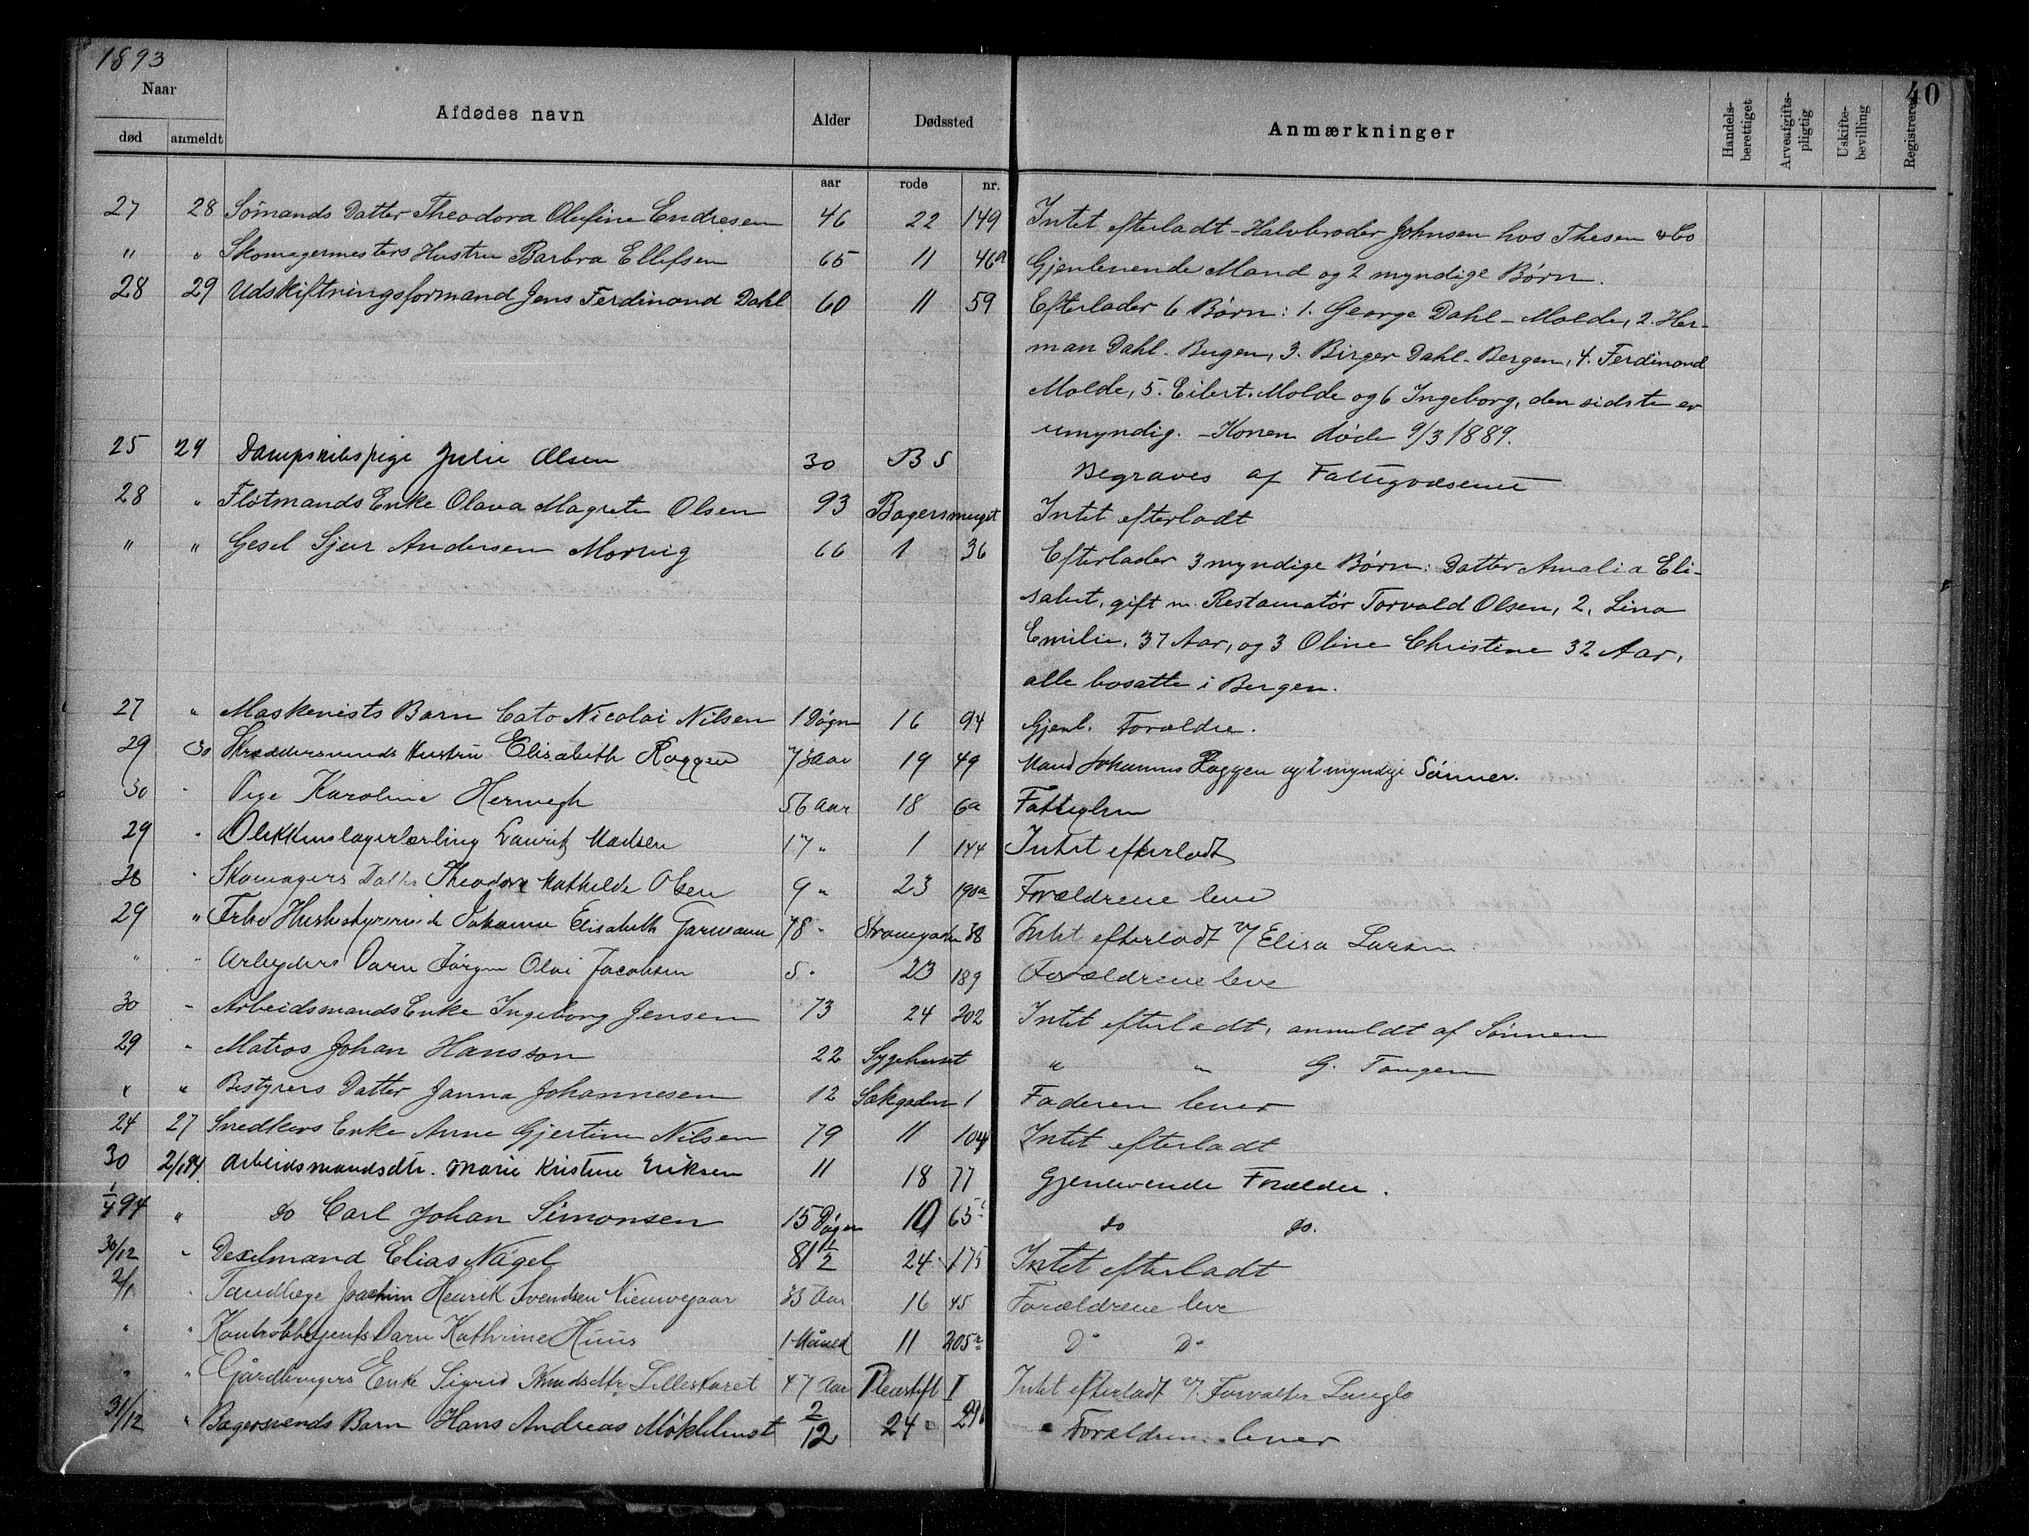 1893
40
Naar
Afdødes navn Alder Dødssted Anmærkninger
Handels-berettiget Arveafgifts-pligtig Uskifte-bevilling Registreret
død anmeldt
aar rode nr.
27 28 Sømands Datter Theodora Olufine Endresen 46 22 149 Intet efterladt - Halvbroder Johnsen hos Thesen & Co
" " Skomagermesters Hustru Barbra Ellefsen 65 11 46a Gjenlevende Mand og 2 myndige Børn.
28 29 Udskiftningsformand Jens Ferdinand Dahl 60 11 59 Efterlader 6 Børn: 1. George Dahl - Molde, 2. Her-
man Dahl - Bergen, 3. Birger Dahl - Bergen, 4. Ferdinand
Molde, 5. Eilert. Molde og 6 Ingeborg, den sidste er
umyndig. - Konen døde 9/3 1889.
25 29 Dampskibspige Julie Olsen 30 B S Begraves af Fattigvæsenet
28 " Fløtmands Enke Olava Magrete Olsen 93 Intet efterladt
" " Gesel Sjur Andersen Morvig 66 1 36 Efterlader 3 myndige Børn: Datter Amalia Eli-
sabet, gift m. Restauratør Torvald Olsen, 2, Lina
Emilie, 37 Aar, og 3 Oline Christine 32 Aar,
alle bosatte i Bergen.
27 " Maskenists Barn Cato Nicolai Nilsen 1 Døgn 16 94 Gjenl. Forældre.
29 30 Skræddersvends Hustru Elisabeth Roggen 73 Aar 19 49 Mand Johannes Roggen og 2 myndige Sønner.
30 " Pige Karoline Herwegh 56 Aar 18 6a Fattiglem
29 " Blikkenslagerlærling Lauritz Madsen 17 " 1 144 Intet efterladt
28 " Skomagers Datter Theodora Mathilde Olsen 9 " 23 190a Forældrene leve
29 " Johanne Elisabeth Garmann 78 " Strangaden 38 Intet efterladt v/ Elisa Larsen
" " Arbeyders Barn Jørgen Olai Jacobsen 5 " 23 189 Forældrene leve
30 " Arbeidsmands Enke Ingeborg Jensen 73 24 202 Intet efterladt, anmeldt af Sønnen
29 " Matros Johan Hansson 22 Sygehuset " " G. Tangen
" " Bestyrers Datter Janna Johannesen 12 1 Faderen lever
24 27 Snedkers Enke Anne Gjertine Nilsen 79 11 104 Intet efterladt
30 2/1 94. Arbeidsmandsdtr. Marie Kristine Eriksen 11 18 77 Gjenlevende Forælder.
1/1 94 " do Carl Johan Simonsen 15 Døgn 10 65 do do.
30/12 " Dexelmand Elias Nagel 81 1/2 24 175 Intet efterladt
2/1 " Tandlæge Joachim Henrik Svendsen Nieuwejaar 35 Aar 16 45 Forældrene leve
" " Barn Kathrine Huus 1 Måned 11 205 Do Do
" " Gårdbrugers Enke Sigrid Knudsdtr. Lilleskaret 47 Aar Pleiestift I Intet efterladt v/ Forvalter Langlo
31/12 " Bagersvends Barn Hans Andreas Møklebust 2/12 24 Forældrene lever